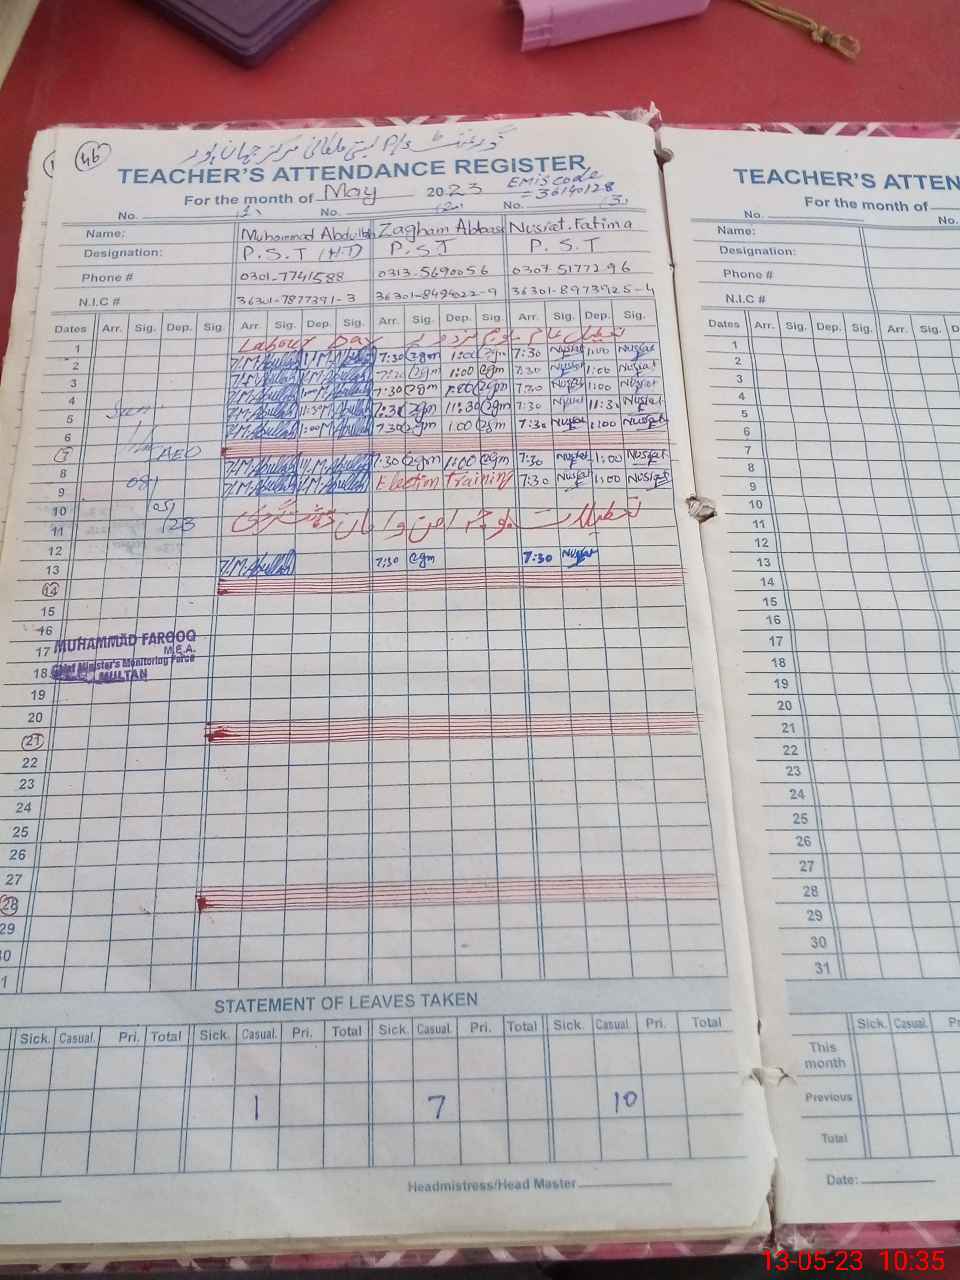 46
TEACHER'S ATTENDANCE REGISTER
For the month of May 2023
EMIS code
= 36140128
No. (1) No. (2) No. (3)
Name: Muhammad Abdullah Zagham Abbas Nusrat Fatima
Designation: P.S.T (H.T) P.S.T P.S.T
Phone # 0301-7741588 0313-5690056 0307 5177296
N.I.C # 36301-7877391-3 36301-8494022-9 36301-8973925-4
Dates Arr. Sig. Dep. Sig. Arr. Sig. Dep. Sig. Arr. Sig. Dep. Sig. Arr. Sig. Dep. Sig.
1 Labour Day
2 M.Abdullah M.Abdullah 7:30 Zgm 1:00 Zgm 7:30 Nusrat 1:00 Nusrat
3 M.Abdullah M.Abdullah 7:30 Zgm 1:00 Zgm 7:30 Nusrat 1:00 Nusrat
4 M.Abdullah M.Abdullah 7:30 Zgm 1:00 Zgm 7:30 Nusrat 1:00 Nusrat
5 M.Abdullah 11:30 M.Abdullah 7:30 Zgm 11:30 Zgm 7:30 Nusrat 11:30 Nusrat
6 M.Abdullah 1:00 M.Abdullah 7:30 Zgm 1:00 Zgm 7:30 Nusrat 1:00 Nusrat
7 AEO
8 M.Abdullah M.Abdullah 7:30 Zgm 1:00 Zgm 7:30 Nusrat 1:00 Nusrat
9 M.Abdullah M.Abdullah Election Training 7:30 Nusrat 1:00 Nusrat
10
11 123
12
13 M.Abdullah 7:30 Zgm 7:30 Nusrat
14
15
16
MUHAMMAD FAROOQ
17 M.E.A.
18 Chief Minister's Monitoring Force
MULTAN
19
20
21
22
23
24
25
26
27
28
29
30
31
STATEMENT OF LEAVES TAKEN
Sick. Casual. Pri. Total Sick. Casual. Pri. Total Sick. Casual. Pri. Total Sick. Casual. Pri. Total
1 7 10
Headmistress/Head Master
TEACHER'S ATTEN
For the month of
No. No.
Name:
Designation:
Phone #
N.I.C #
Dates Arr. Sig. Dep. Sig. Arr.
1
2
3
4
5
6
7
8
9
10
11
12
13
14
15
16
17
18
19
20
21
22
23
24
25
26
27
28
29
30
31
Sick. Casual. Pr
This month
Previous
Total
Date:
13-05-23 10:35